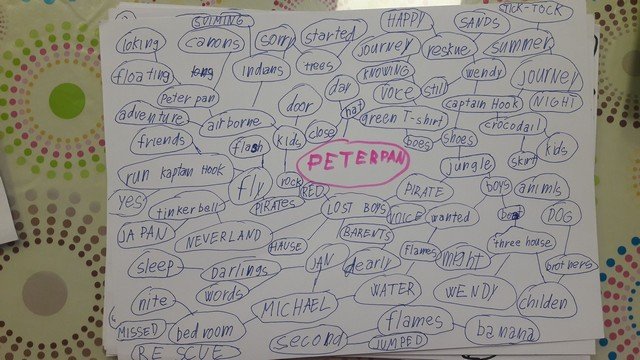 SVIMING
HAPPY
SANDS
STICK-TOCK
loking
canons
sorry
started
journey
reskue
summer
floating
indians
trees
KNOWING
wendy
JOURNEY
Peter pan
day
VOICE
still
captain Hook
NIGHT
adventure
airborne
door
hat
green T-shirt
crocodail
friends
flash
kids
close
goes
shoes
kids
run kaptam Hook
PETERPAN
jungle
skirt
YES
tinkerball
fly
rock
RED
PIRATE
boys
animls
PIRATES
LOST BOYS
VOICE
wanted
DOG
JAPAN
NEVERLAND
HAUSE
BARENTS
three house
sleep
Darlings
JAN
dearly
Flames
might
brothers
nite
words
MICHAEL
WATER
WENDY
childen
MISSED
bedroom
second
flames
banana
RESCUE
JUMPED